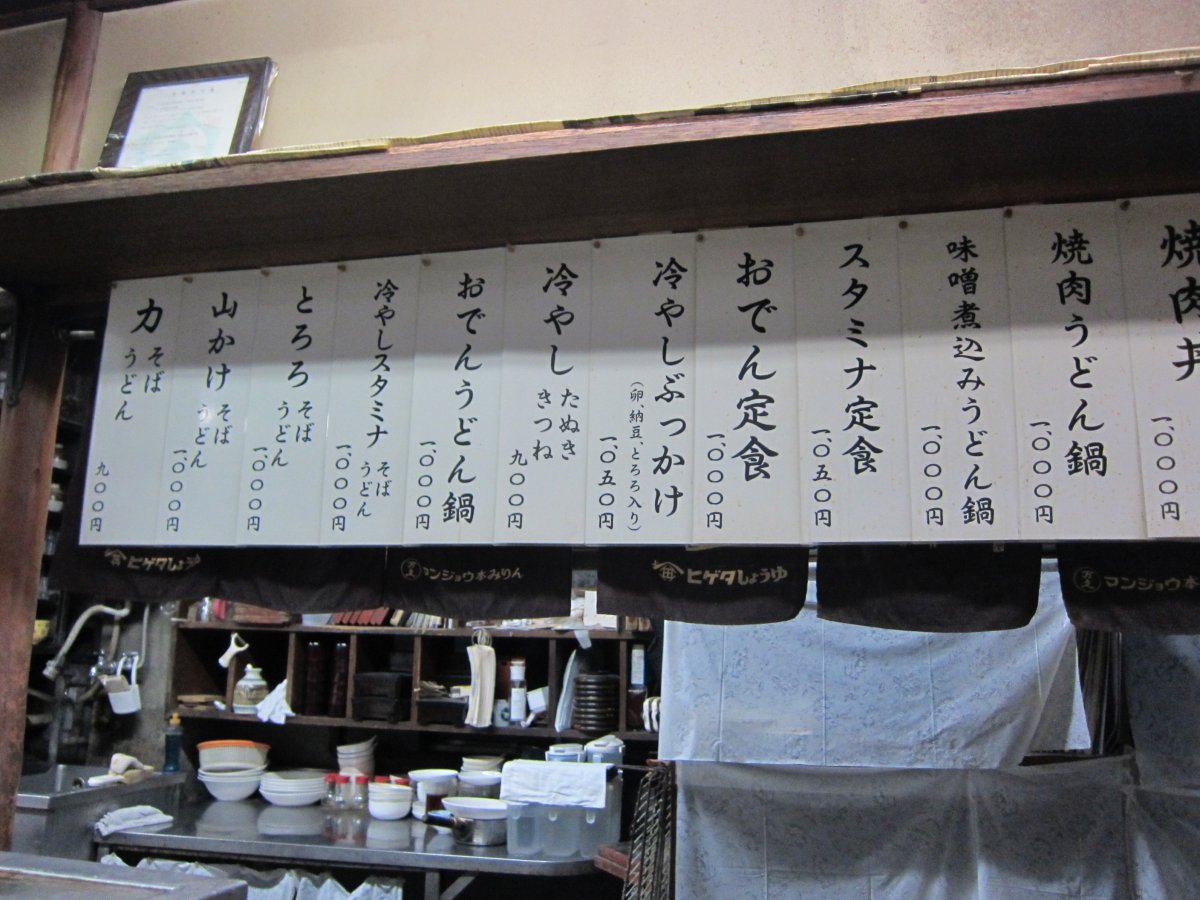 焼肉丼
一、〇〇〇円
焼肉うどん鍋
一、〇〇〇円
味噌煮込みうどん鍋
一、〇〇〇円
スタミナ定食
一、〇五〇円
おでん定食
一、〇〇〇円
冷やしぶっかけ
(卵、納豆、とろろ入り)
一、〇五〇円
冷やし
たぬき
きつね
九〇〇円
おでんうどん鍋
一、〇〇〇円
冷やしスタミナ
そば
うどん
一、〇〇〇円
とろろ
そば
うどん
一、〇〇〇円
山かけ
そば
うどん
一、〇〇〇円
力
そば
うどん
九〇〇円
ヒゲタしょうゆ
マンジョウ本みりん
ヒゲタしょうゆ
マンジョウ本みりん